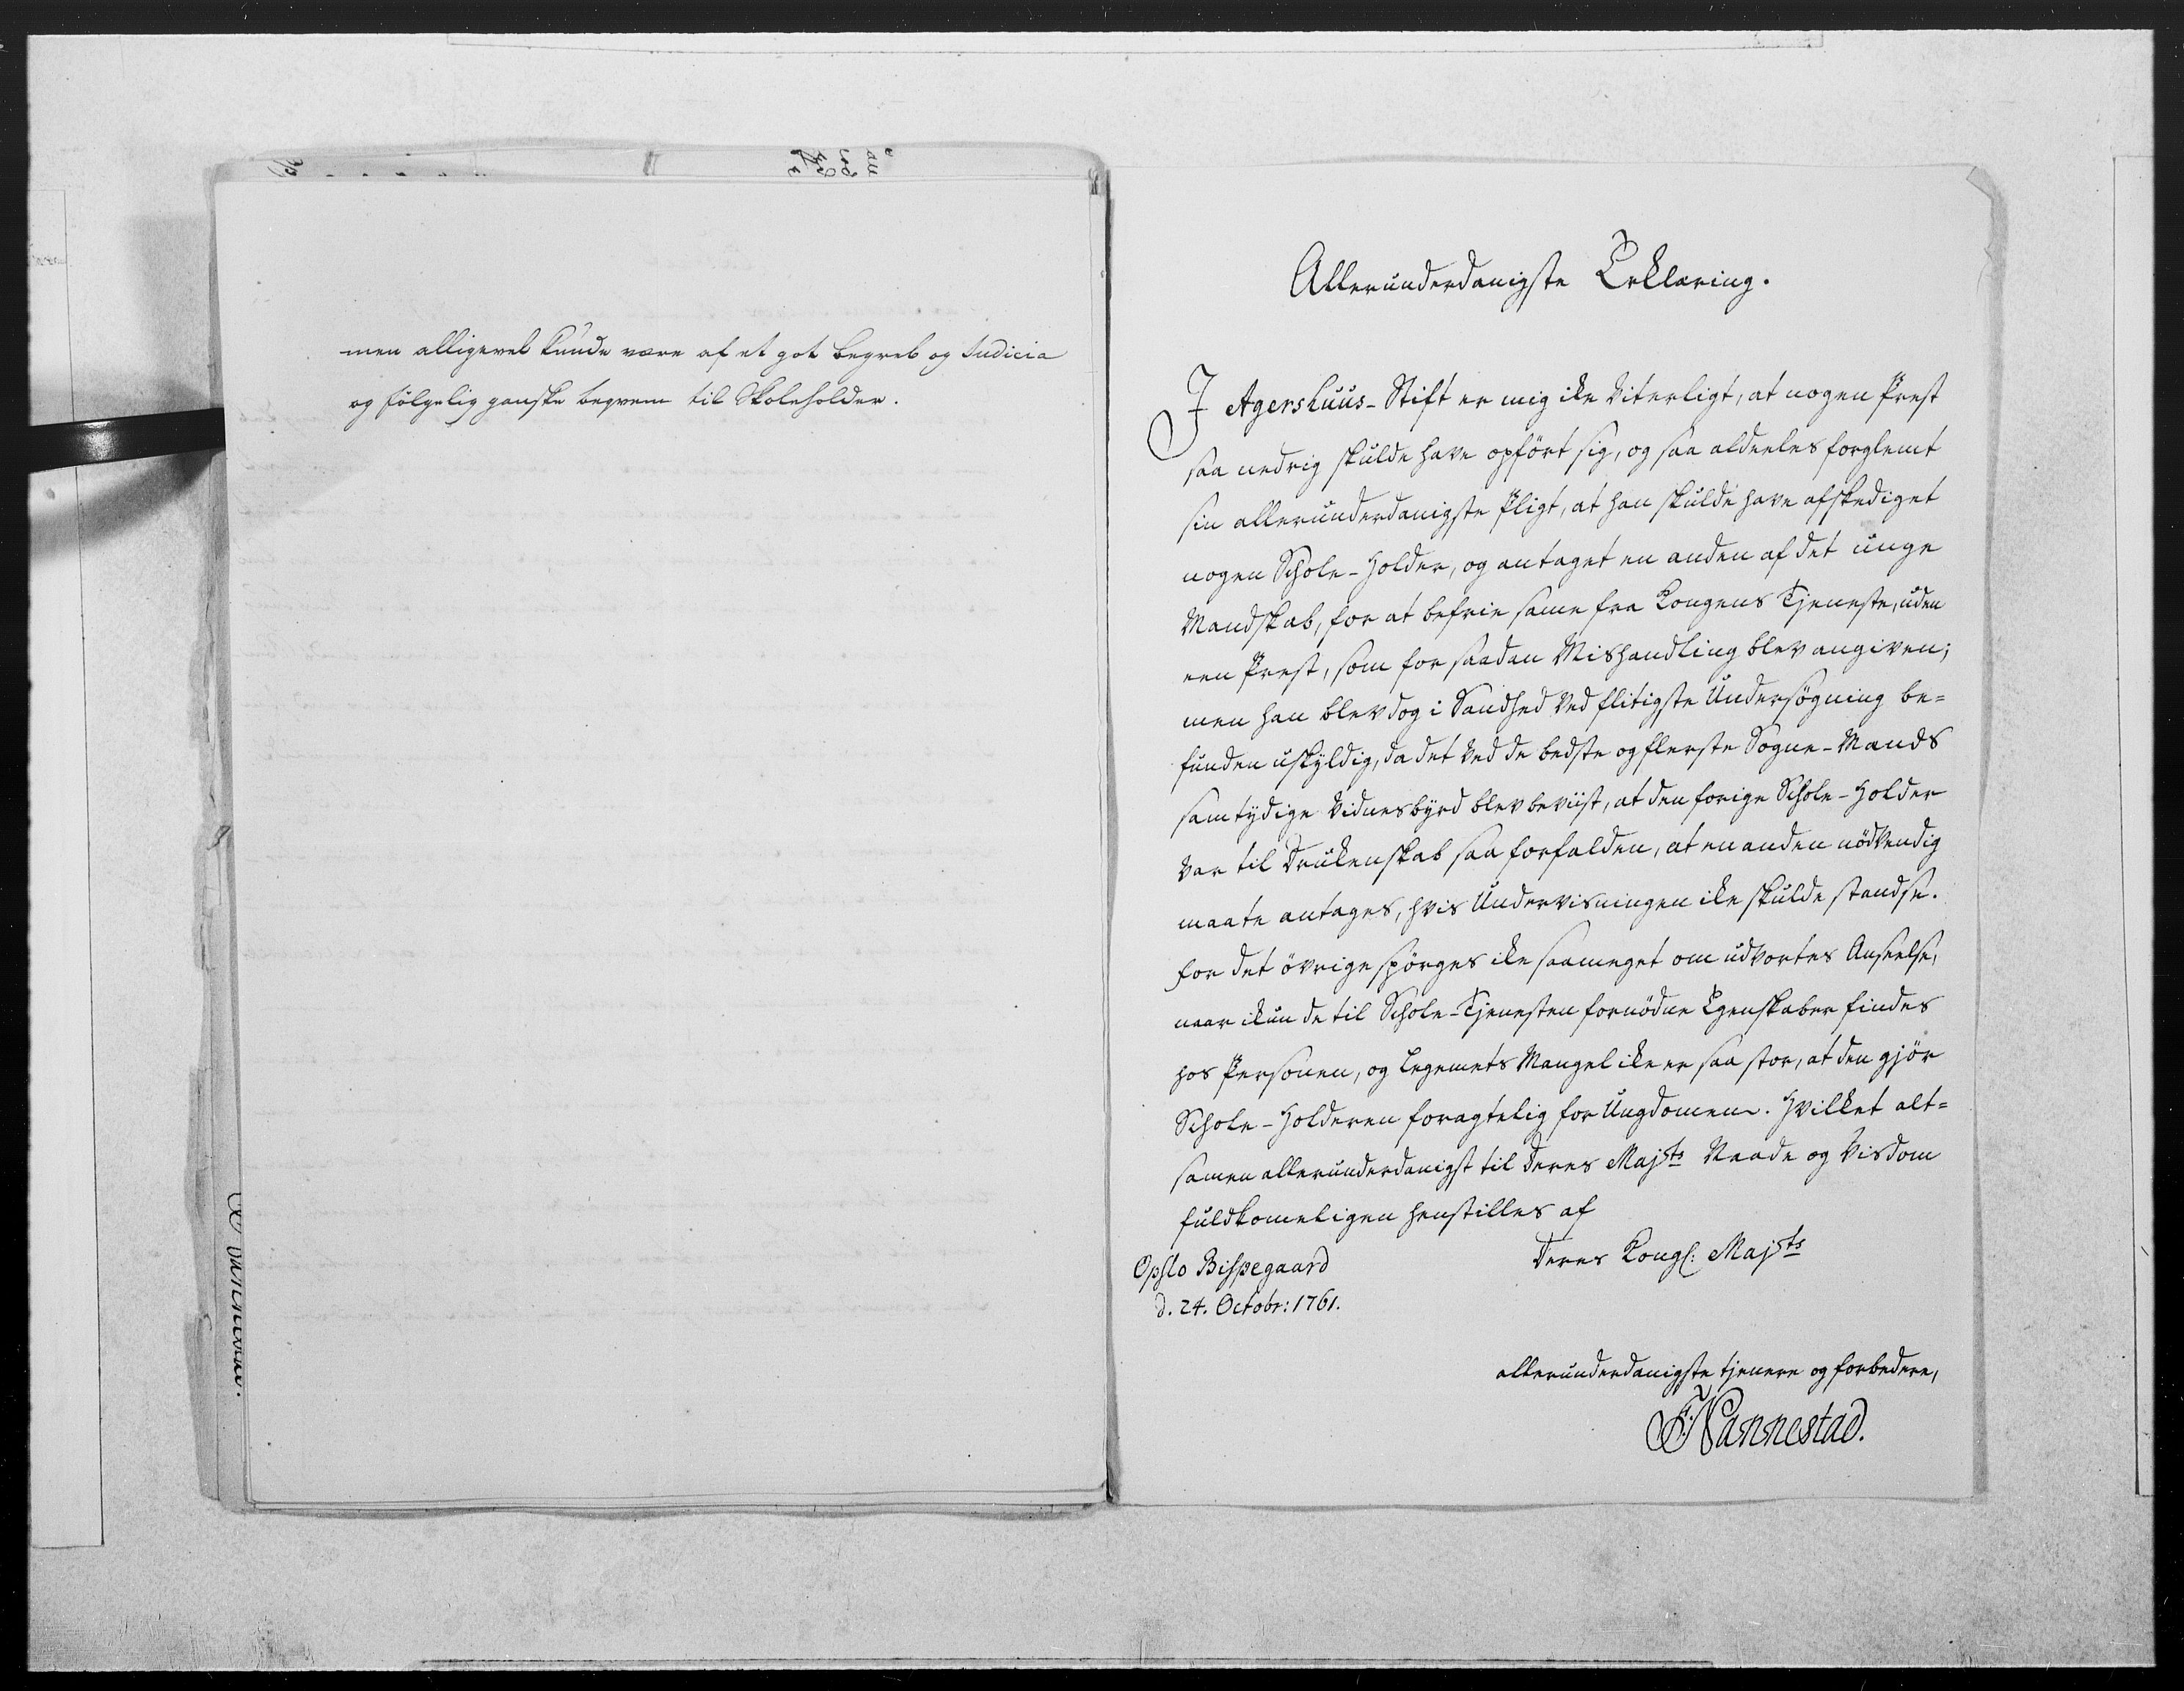 men alligevel kunde være af et got begreb og Judicia
og følgelig ganske beqvem til Skoleholder.
Allerunderdanigste Erklæring.
I Agershuus-Stift er mig ike Viterligt, at nogen Prest
saa nedrig skulde have opført sig, og saa aldeeles forglemt
sin allerunderdanigste Pligt, at han skulde have afskediget
nogen Schole-Holder, og antaget en anden af det unge
Mandskab, for at befrie same fra Kongens Tjeneste, uden
een Prest, som for saadan Mishandling blev angiven;
men han blev dog i Sandhed ved flitigste Undersøgning be=
funden uskyldig, da det ved de bedste og fleeste Sogne-Mænds
samtydige Vidnesbyrd blev beviist, at den forige Schole-Holder
var til Drukenskab saa forfalden, at en anden nødvendig
maate antages, hvis Undervisningen ike skulde standse.
For det øvrige spørges ike saameget om udvortes Anseelse,
naar ikun de til Schole-Tjenesten fornødne Egenskaber findes
hos Personen, og Legemets Mangel ike er saa stor, at den gjør
Schole-Holderen foragtelig for Ungdomen. Hvilket alt=
samen allerunderdanigst til Deres Majsts Naade og Visdom
fuldkomeligen henstilles af
Deres Kongl: Majsts
Opslo Bispegaard
d. 24. Octobr: 1761.
allerunderdanigste tjenere og forbedere,
F. Nannestad.